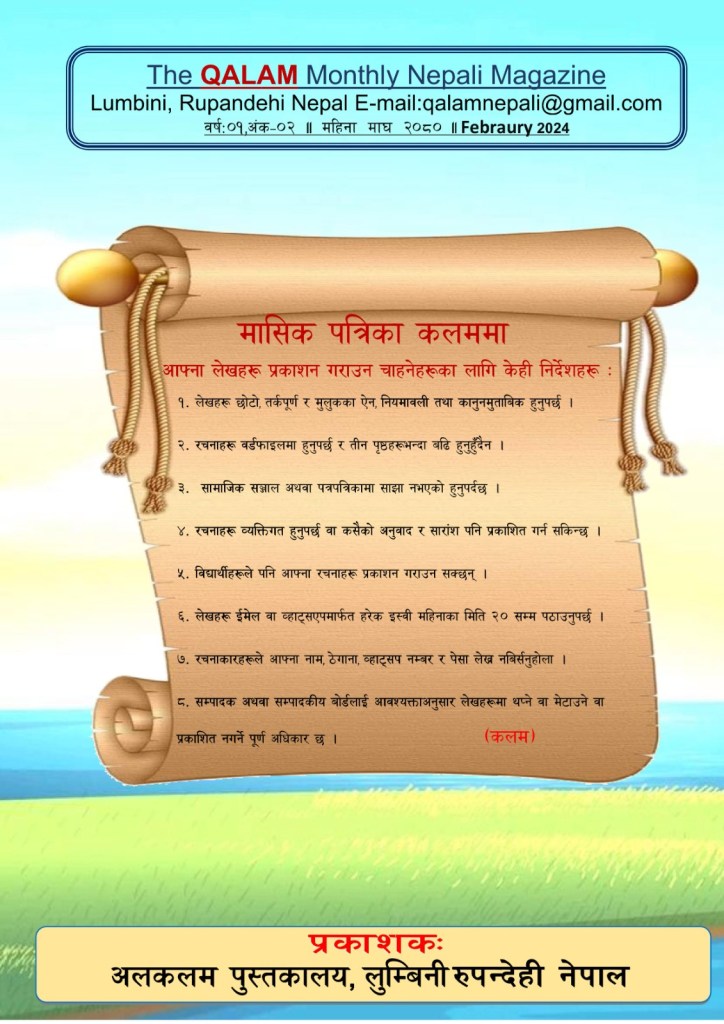 The QALAM Monthly Nepali Magazine
Lumbini, Rupandehi Nepal E-mail:qalamnepali@gmail.com
वर्ष:०१,अंक-०२ ॥ महिना माघ २०८० ॥ Febraury 2024
मासिक पत्रिका कलममा
आफ्ना लेखहरू प्रकाशन गराउन चाहनेहरूका लागि केही निर्देशहरू :
१. लेखहरू छोटो, तर्कपूर्ण र मुलुकका ऐन, नियमावली तथा कानुनमुताबिक हुनुपर्छ ।
२. रचनाहरू वर्डफाइलमा हुनुपर्छ र तीन पृष्ठहरूभन्दा बढि हुनुहुँदैन ।
३. सामाजिक सञ्जाल अथवा पत्रपत्रिकामा साझा नभएको हुनुपर्दछ ।
४. रचनाहरू व्यक्तिगत हुनुपर्छ वा कसैको अनुवाद र सारांश पनि प्रकाशित गर्न सकिन्छ ।
५. विद्यार्थीहरूले पनि आफ्ना रचनाहरू प्रकाशन गराउन सक्छन् ।
६. लेखहरू ईमेल वा व्हाट्सएपमार्फत हरेक इस्वी महिनाका मिति २० सम्म पठाउनुपर्छ ।
७. रचनाकारहरूले आफ्ना नाम, ठेगाना, व्हाट्सप नम्बर र पेसा लेख्न नबिर्सनुहोला ।
८. सम्पादक अथवा सम्पादकीय बोर्डलाई आवश्यक्ताअनुसार लेखहरूमा थप्ने वा मेटाउने वा
प्रकाशित नगर्ने पूर्ण अधिकार छ । (कलम)
प्रकाशकः
अलकलम पुस्तकालय, लुम्बिनी रुपन्देही नेपाल